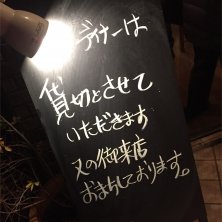 ディナーは
貸切とさせて
いただきます
又の御来店
お待ちしております。